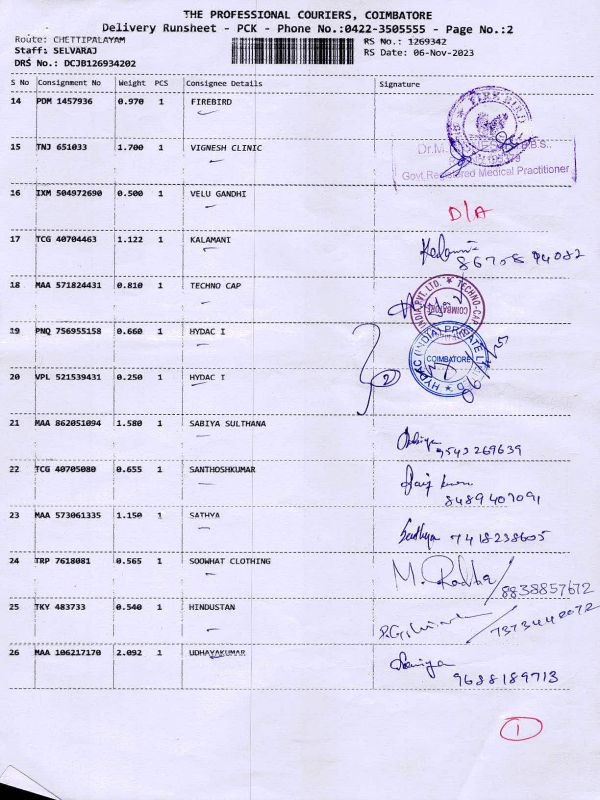 THE PROFESSIONAL COURIERS, COIMBATORE
Delivery Runsheet - PCK - Phone No.:0422-3505555 - Page No.:2
Route: CHETTIPALAYAM RS No.: 1269342
Staff: SELVARAJ RS Date: 06-Nov-2023
DRS No.: DCJB126934202
S No Consignment No Weight PCS Consignee Details Signature
14 PDM 1457936 0.970 1 FIREBIRD
FIRE BIRD
15 TNJ 651033 1.700 1 VIGNESH CLINIC
Dr.M.
Govt.Registered Medical Practitioner
16 IXM 504972690 0.500 1 VELU GANDHI D/A
17 TCG 40704463 1.122 1 KALAMANI
86708 94082
18 MAA 571824431 0.810 1 TECHNO CAP
INDIA PVT. LTD. * TECHNO-CAP
COIMBATORE
19 PNQ 756955158 0.660 1 HYDAC I
HYDAC (INDIA) PRIVATE
COIMBATORE
20 VPL 521539431 0.250 1 HYDAC I 2
21 MAA 862051094 1.580 1 SABIYA SULTHANA Sabiya 9543269639
22 TCG 40705080 0.655 1 SANTHOSHKUMAR
8489407091
23 MAA 573061335 1.150 1 SATHYA Sathya 7418238605
24 TRP 7618081 0.565 1 SOOWHAT CLOTHING M. Radha / 8838857672
25 TKY 483733 0.540 1 HINDUSTAN
26 MAA 106217170 2.092 1 UDHAYAKUMAR
9688189713
1